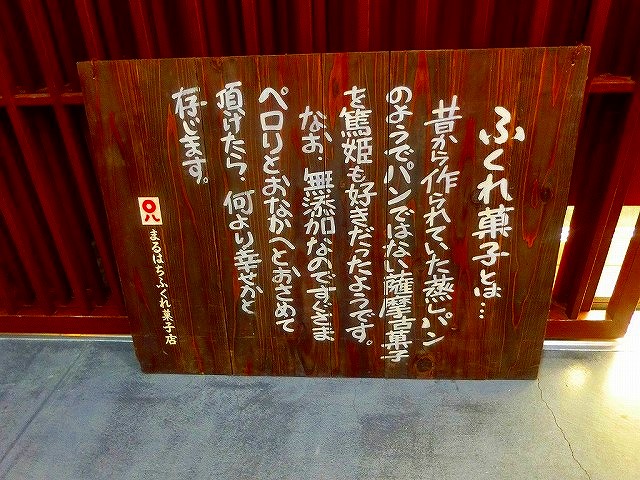 ふくれ菓子とは…
昔から作られていた蒸しパン
のようでパンではない薩摩古菓子
を篤姫も好きだったようです。
なお、無添加なのですざま
ペロリとおなかへとおさめて
頂けたら、何より幸せかと
存じます。
まるはちふくれ菓子店